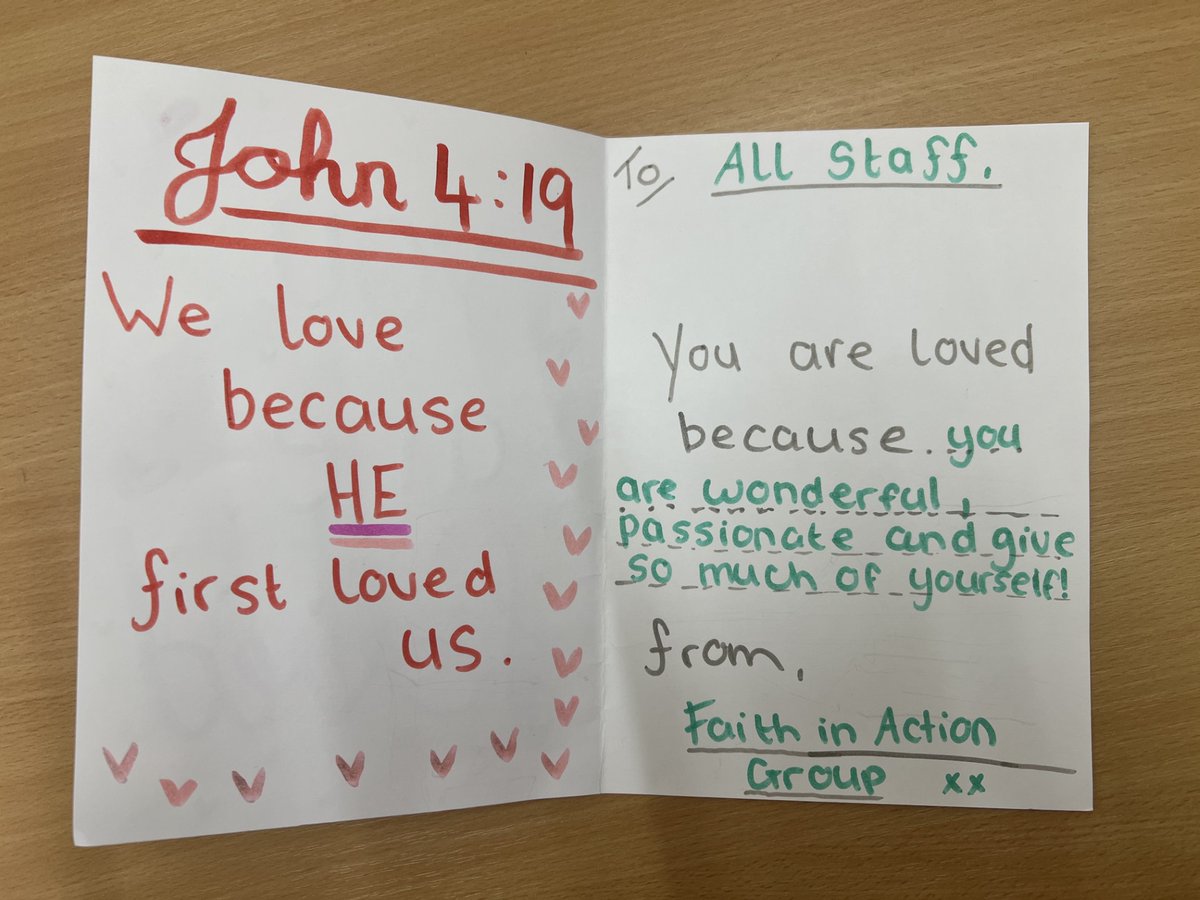 John 4:19
We love
because
HE
first loved
us.
To, All Staff.
You are loved
because. you
are wonderful,
passionate and give
so much of yourself!
from,
Faith in Action
Group xx